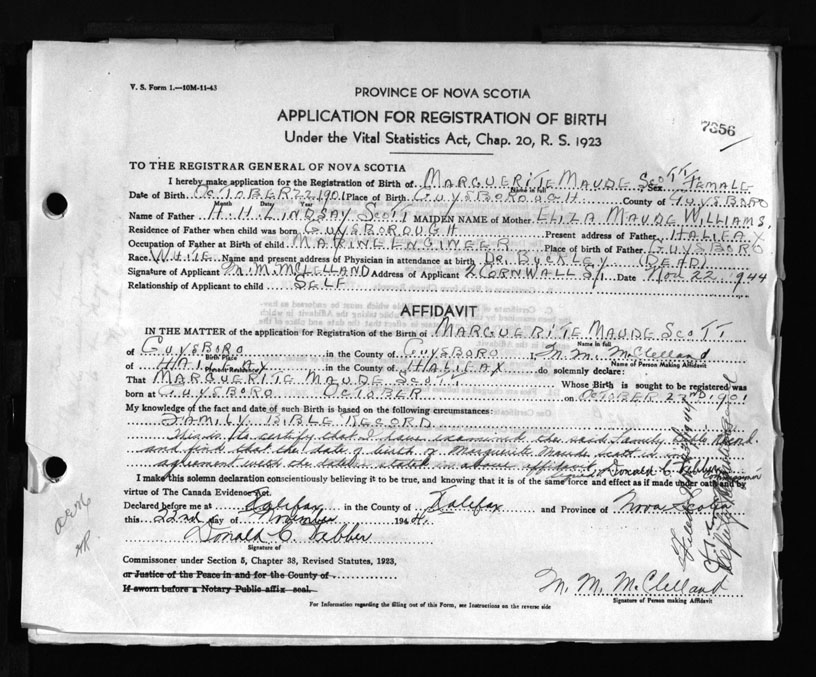 V. S. Form 1.—10M-11-43
PROVINCE OF NOVA SCOTIA
APPLICATION FOR REGISTRATION OF BIRTH
7356
Under the Vital Statistics Act, Chap. 20, R. S. 1923
TO THE REGISTRAR GENERAL OF NOVA SCOTIA
I hereby make application for the Registration of Birth of MARGUERITE MAUDE SCOTT. Sex FEMALE
Name in full
Date of Birth OCTOBER 22 1901 Place of Birth GUYSBOROUGH County of GUYSBORO
Month Day Year
Name of Father H. H. LINDSAY SCOTT MAIDEN NAME of Mother ELIZA MAUDE WILLIAMS.
Residence of Father when child was born GUYSBOROUGH Present address of Father HALIFAX
Occupation of Father at Birth of child MARINE ENGINEER Place of birth of Father GUYSBORO
Race WHITE Name and present address of Physician in attendance at birth DR. BUCKLEY (DEAD)
Signature of Applicant M. M. MCLELLAND Address of Applicant 2 CORNWALL ST. Date Nov 22 1944
Relationship of Applicant to child SELF
AFFIDAVIT
IN THE MATTER of the application for Registration of the Birth of MARGUERITE MAUDE SCOTT.
Name in full
of GUYSBORO in the County of GUYSBORO I, M. M. McClelland
Birth Place Name of Person Making Affidavit
of HALIFAX in the County of HALIFAX do solemnly declare:
Persons Residence
That MARGUERITE MAUDE SCOTT. Whose Birth is sought to be registered was
born at GUYSBORO OCTOBER on OCTOBER 22ND 1901
My knowledge of the fact and date of such Birth is based on the following circumstances:
FAMILY BIBLE RECORD
This is to certify that I have examined the said Family Bible Record
and find that the date of birth of Marguerite Maude Scott is in
agreement with the date stated in above affidavit Donald C. Webber
Commissioner
I make this solemn declaration conscientiously believing it to be true, and knowing that it is of the same force and effect as if made under oath and by
virtue of The Canada Evidence Act.
Declared before me at Halifax in the County of Halifax and Province of Nova Scotia
this 22nd day of November 1944.
Donald C. Webber
Signature of
Commissioner under Section 5, Chapter 38, Revised Statutes, 1923,
or Justice of the Peace in and for the County of
If sworn before a Notary Public affix seal.
M. M. McClelland
Signature of Person making Affidavit
For Information regarding the filling out of this Form, see Instructions on the reverse side